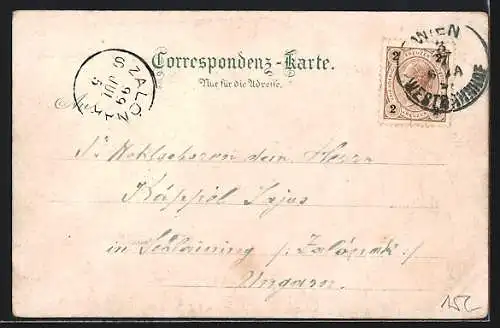 WIEN
WESTBAHNHOF
2 2
ZALON
99
JUL
5
S
Correspondenz-Karte.
Nur für die Adresse.
An
Sr Wohlgeboren dem Herrn
Käppel Lajos
in Schlaining /: Zalónak :/
Ungarn.
152